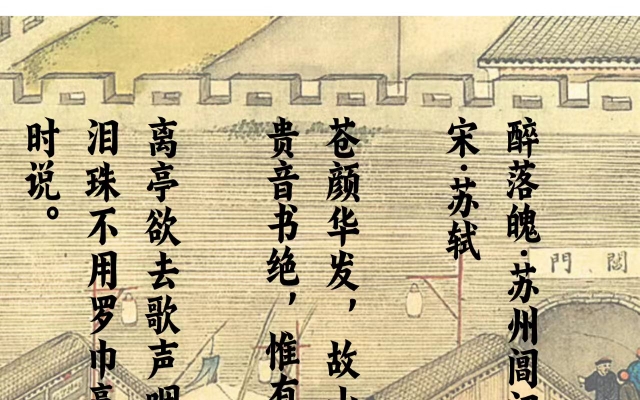 醉落魄·苏州阊
宋·苏轼
苍颜华发，故
贵音书绝，惟有
离亭欲去歌声
泪珠不用罗巾
时说。
門